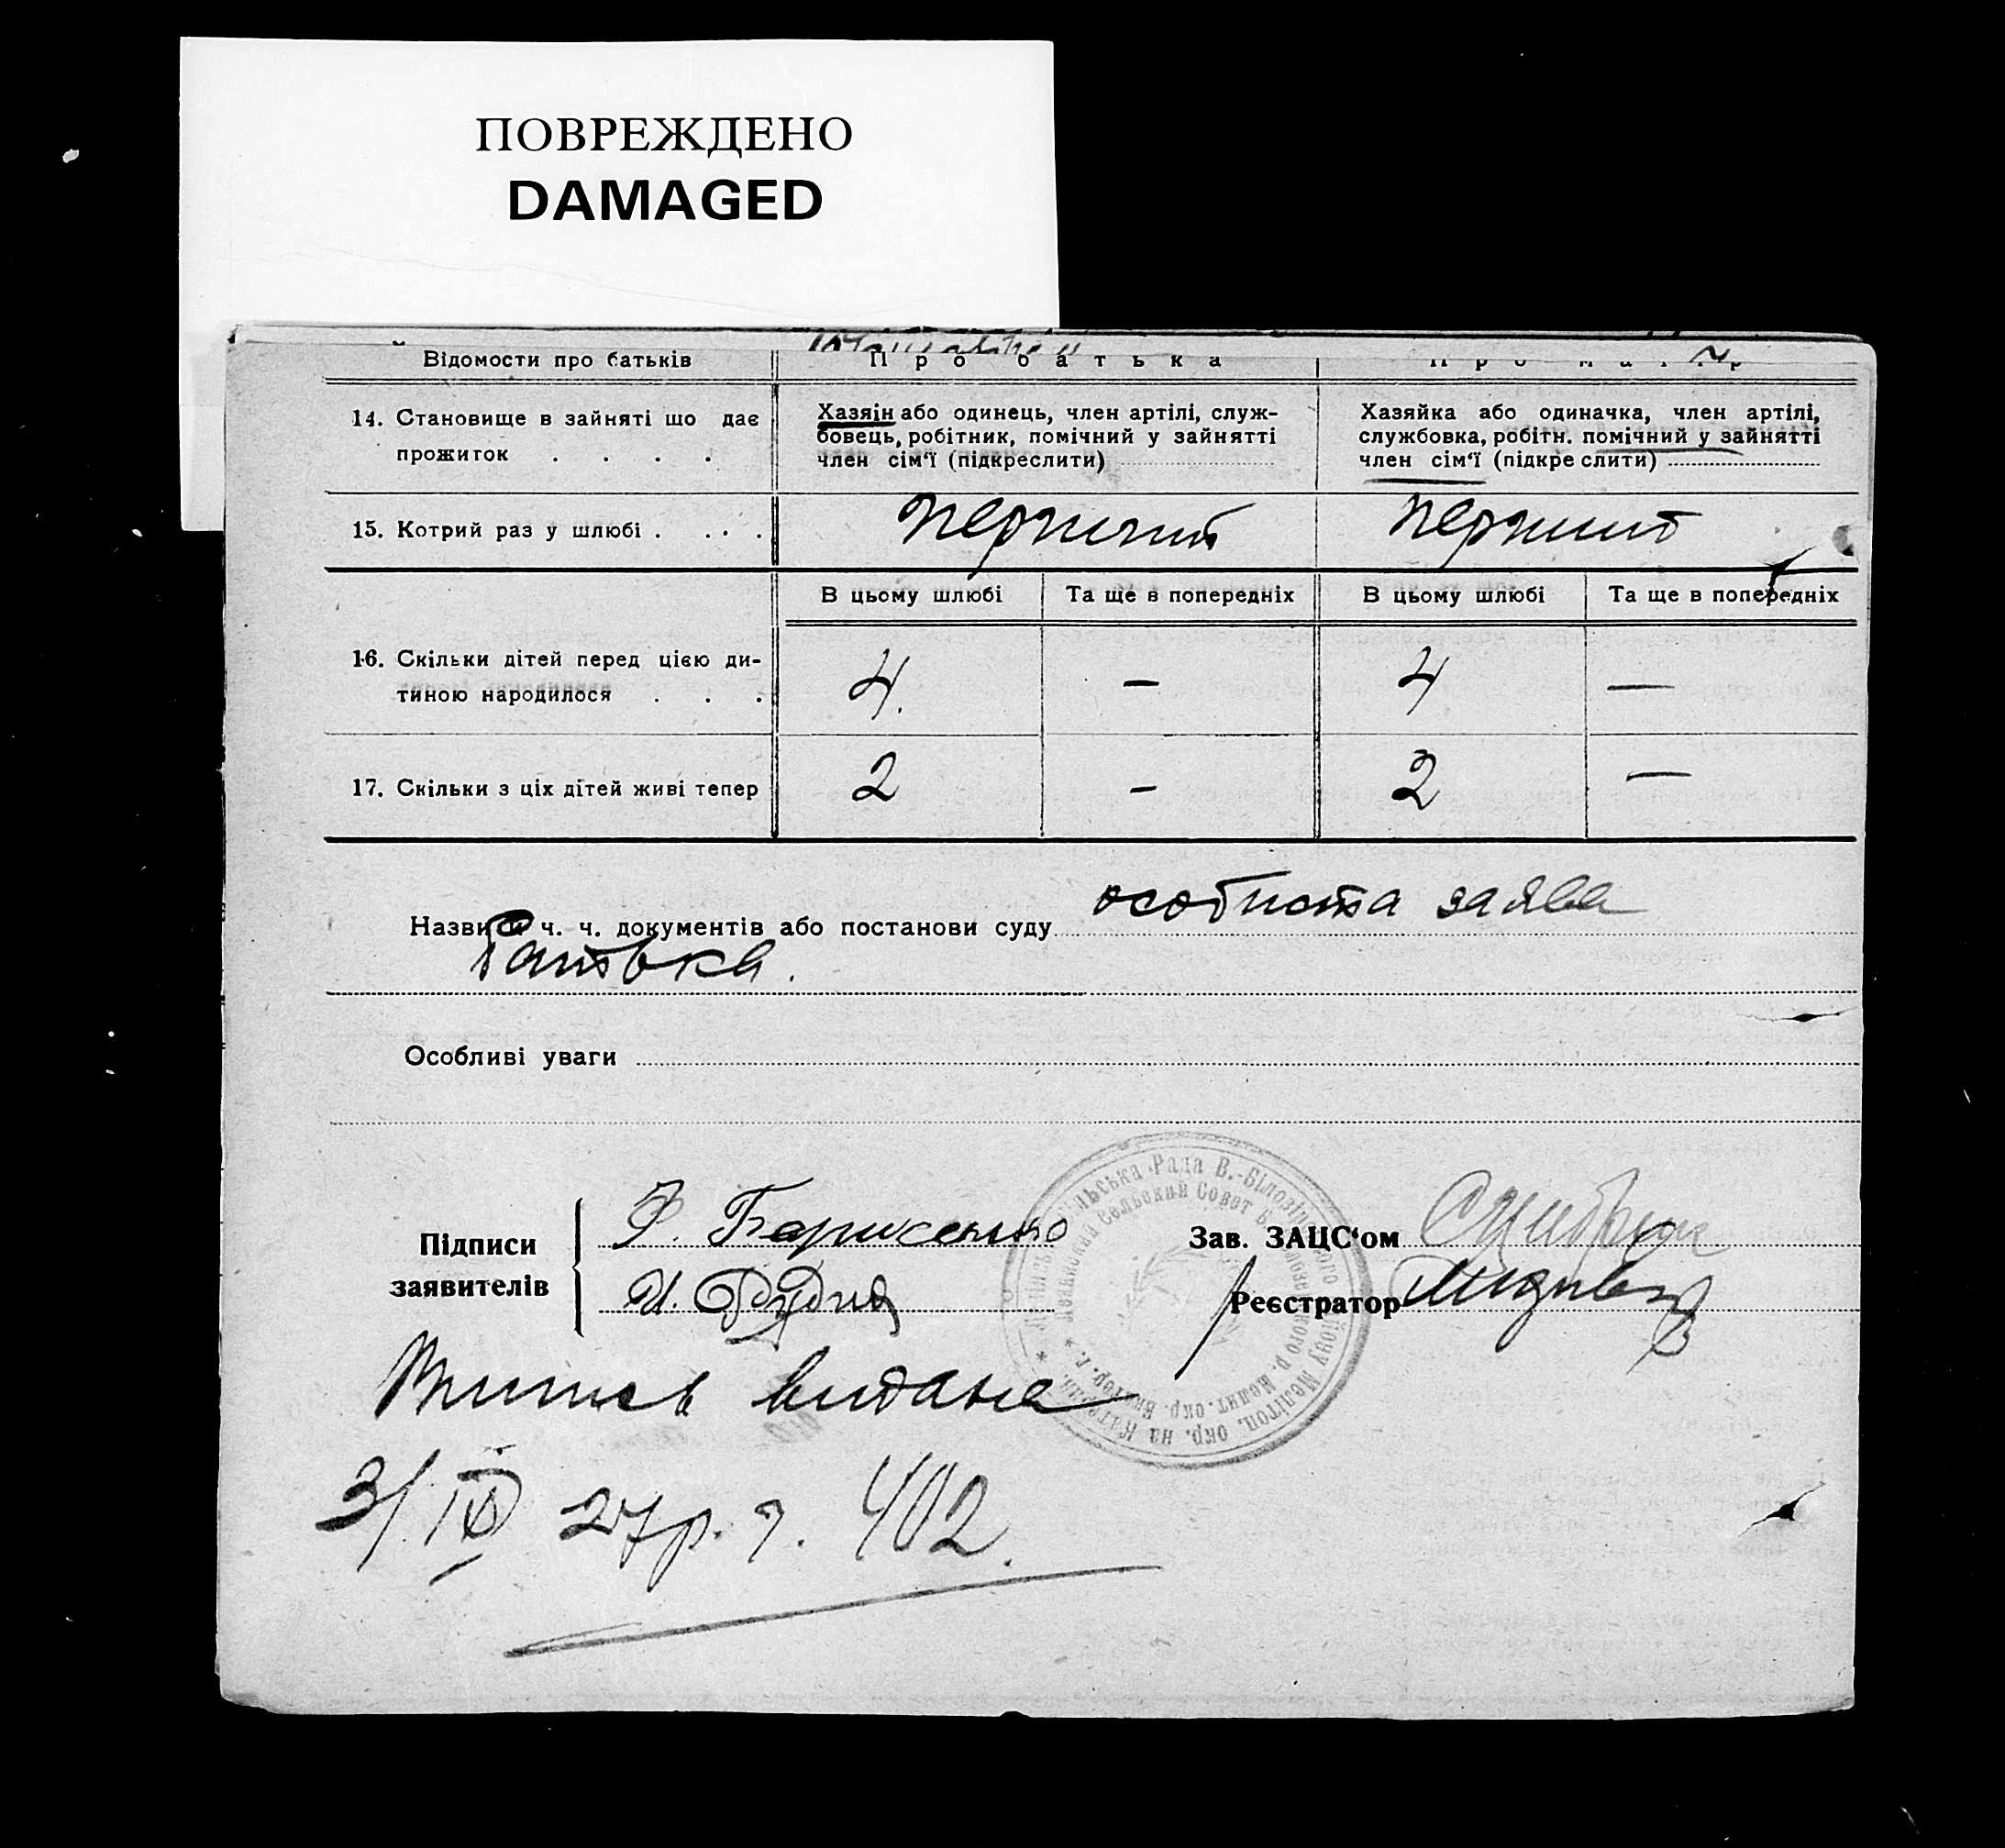 ПОВРЕЖДЕНО
DAMAGED
Відомости про батьків
Про батька
14. Становище в зайняті що дає
прожиток . . . .
Хазяін або одинець, член артілі, служ-
бовець, робітник, помічний у зайнятті
член сім'ї (підкреслити)
Хазяйка або одиначка, член артілі,
службовка, робітн. помічний у зайнятті
член сім'ї (підкреслити)
15. Котрий раз у шлюбі . . . .
первичий
перший
В цьому шлюбі
Та ще в попередніх
В цьому шлюбі
Та ще в попередніх
16. Скільки дітей перед цією ди-
тиною народилося . . .
4.
—
4
—
17. Скільки з ціх дітей живі тепер
2
-
2
—
Назви й ч. ч. документів або постанови суду особиста заява
батька.
Особливі уваги
Підписи
заявителів
И. Рудня
Зав. ЗАЦС'ом
Реєстратор
видана
3/IX 27 р. ч. 402.